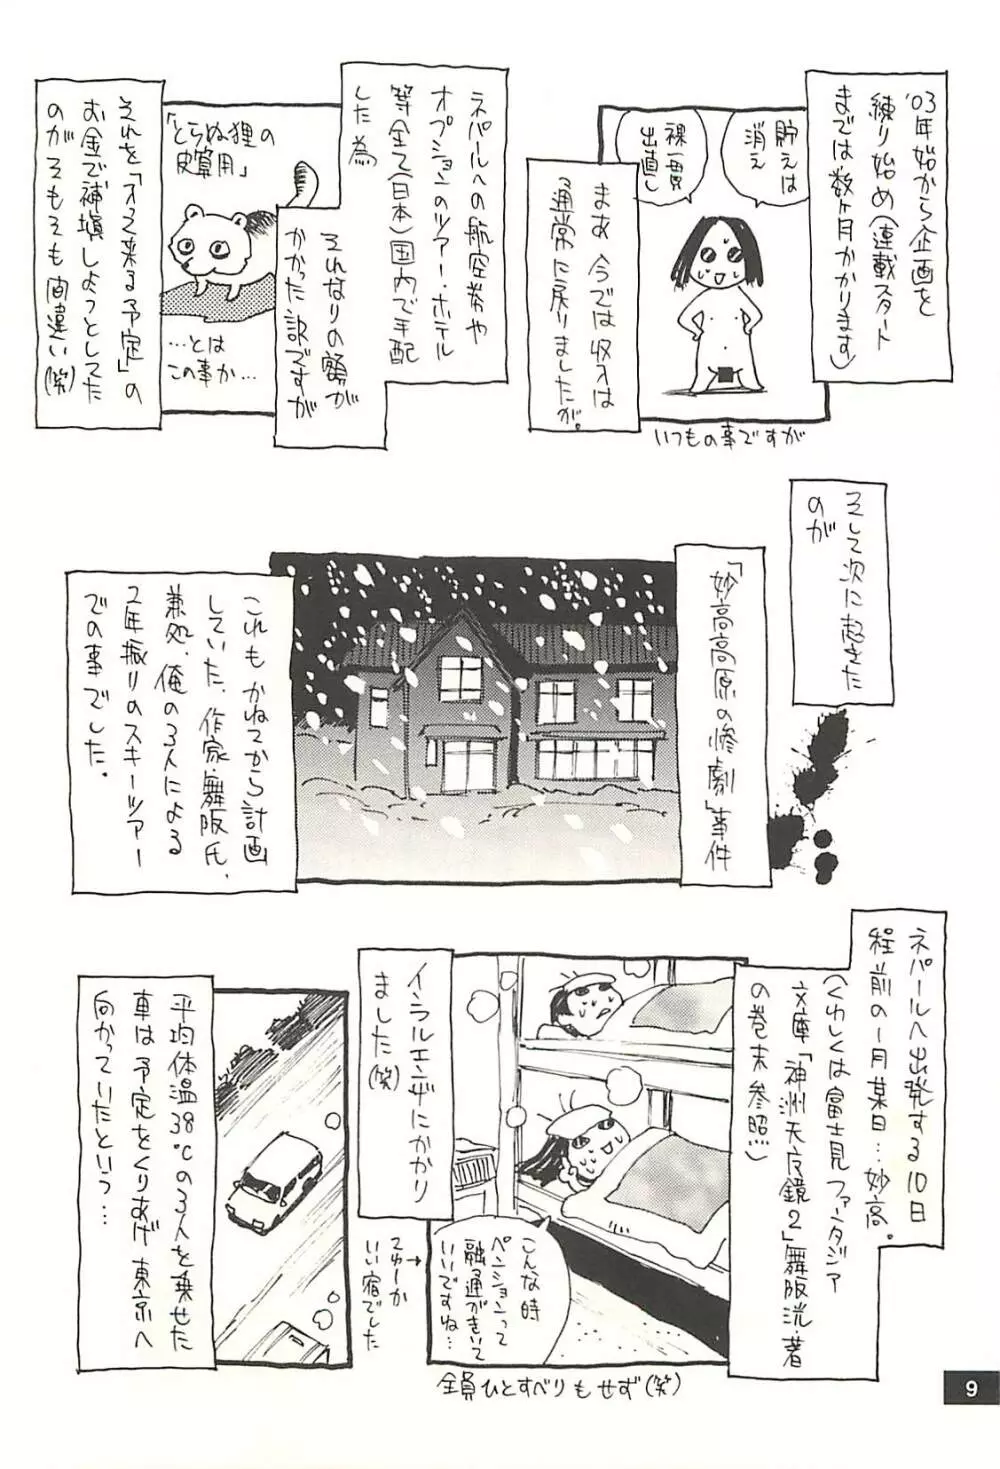 '03年始から企画を
練り始め(連載スタート
までは数ヶ月かかります)
貯えは
消え
裸一貫
出直し
まあ今では収入は
通常に戻りましたが。
いつもの事ですが
ネパールへの航空券や
オプションのツアー・ホテル
等全て(日本)国内で手配
した為
それなりの額が
かかった訳ですが
「とらぬ狸の
皮算用」
…とは
この事か…
それを「入って来る予定」の
お金で補填しようっとしてた
のがそもそも間違い(笑)
そして次に起きた
のが
「妙高高原の惨劇」事件
これもかねてから計画
していた、作家・舞阪氏、
兼処、俺の3人による
2年振りのスキーツアー
での事でした。
ネパールへ出発する10日
程前の1月某日…妙高。
(くわしくは富士見ファンタジア
文庫「神洲天官鏡2」舞阪洸・著
の巻末参照!!)
インフルエンザにかかり
ました(笑)
こんな時
ペンションって
融通がきいて
いいですね…
→
てゆーか
いい宿でした
全員ひとすべりもせず(笑)
平均体温38℃の3人を乗せた
車は予定をくりあげ東京へ
向かっていたという…
9